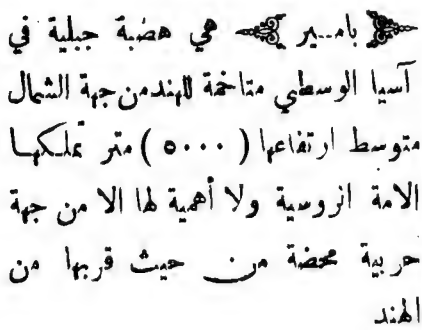 بامير هي هضبة جبلية في
آسيا الوسطي متاخمة للهند من جهة الشمال
متوسط ارتفاعها ( ٥٠٠٠ ) متر تملكها
الامة الروسية ولا أهمية لها الا من جهة
حربية محضة من حيث قربها من
الهند